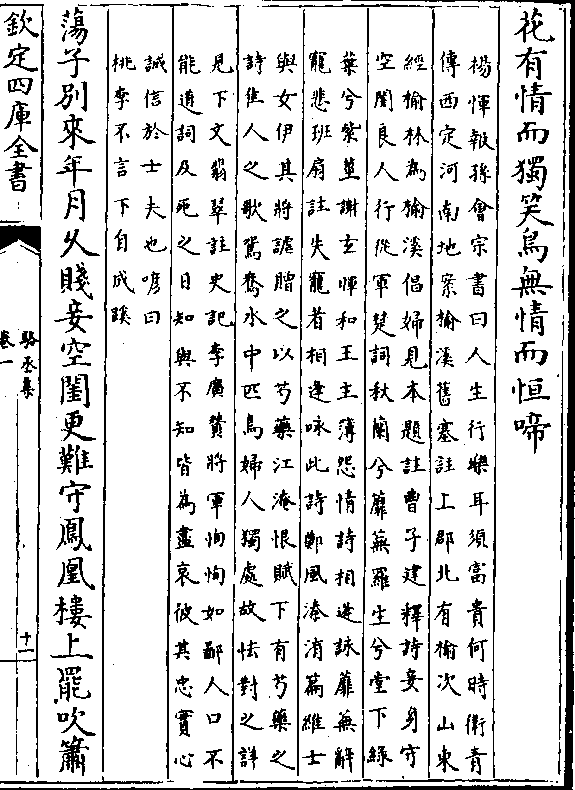 花有情而獨笑鳥無情而恒啼
楊惲報孫會宗書曰人生行樂耳須富貴何時衛青
傳西定河南地案榆溪舊塞註上郡北有榆次山東
經榆林為榆溪倡婦見本題註曹子建釋詩妾身守
空閨良人行從軍楚詞秋蘭兮蘼蕪羅生兮堂下綠
葉兮紫莖謝玄暉和王主薄怨情詩相逢詠蘼蕪辭
寵悲班扇註失寵者相逢咏此詩鄭風溱洧篇維士
與女伊其將謔贈之以芍藥江淹恨賦下有芍藥之
詩隹人之歌鴛鴦水中匹鳥婦人獨處故怯對之詳
見下文翡翠註史記李廣贊將軍恂恂如鄙人口不
能道詞及死之日知與不知皆為盡哀彼其忠實心
誠信於士夫也喭曰
桃李不言下自成蹊
蕩子別來年月乆賤妾空閨更難守鳳凰樓上罷吹簫
欽定四庫全書
駱丞集
卷一
十一